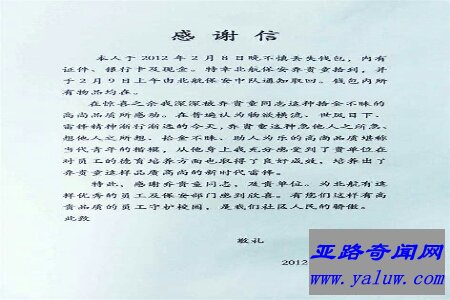 感 谢 信
本人于2012年2月8日晚不慎丢失钱包，内有
证件、银行卡及现金。特幸北航保安乔贵童拾到，并
于2月9日上午由北航保安中队通知取回。钱包内所
有物品均在。
在惊喜之余我深深被乔贵童同志这种拾金不昧的
高尚品质所感动。在普遍认为物欲横流、世风日下、
雷锋精神渐行渐远的今天，乔贵童这种急他人之所急、
想他人之所想、拾金不昧、助人为乐的高尚品质堪称
当代青年的楷模，从他身上我充分感受到了贵单位在
对员工的德育培养方面也取得了良好成效，培养出了
乔贵童这样品质高尚的新时代雷锋。
特此，感谢乔贵童同志，及贵单位。为北航有这
样优秀的员工及保安部门感到欣喜。有您们这样有高
贵品质的员工守护校园，是我们社区人民的骄傲。
此致
敬礼
2012
亚路奇闻网
www.yaluw.com